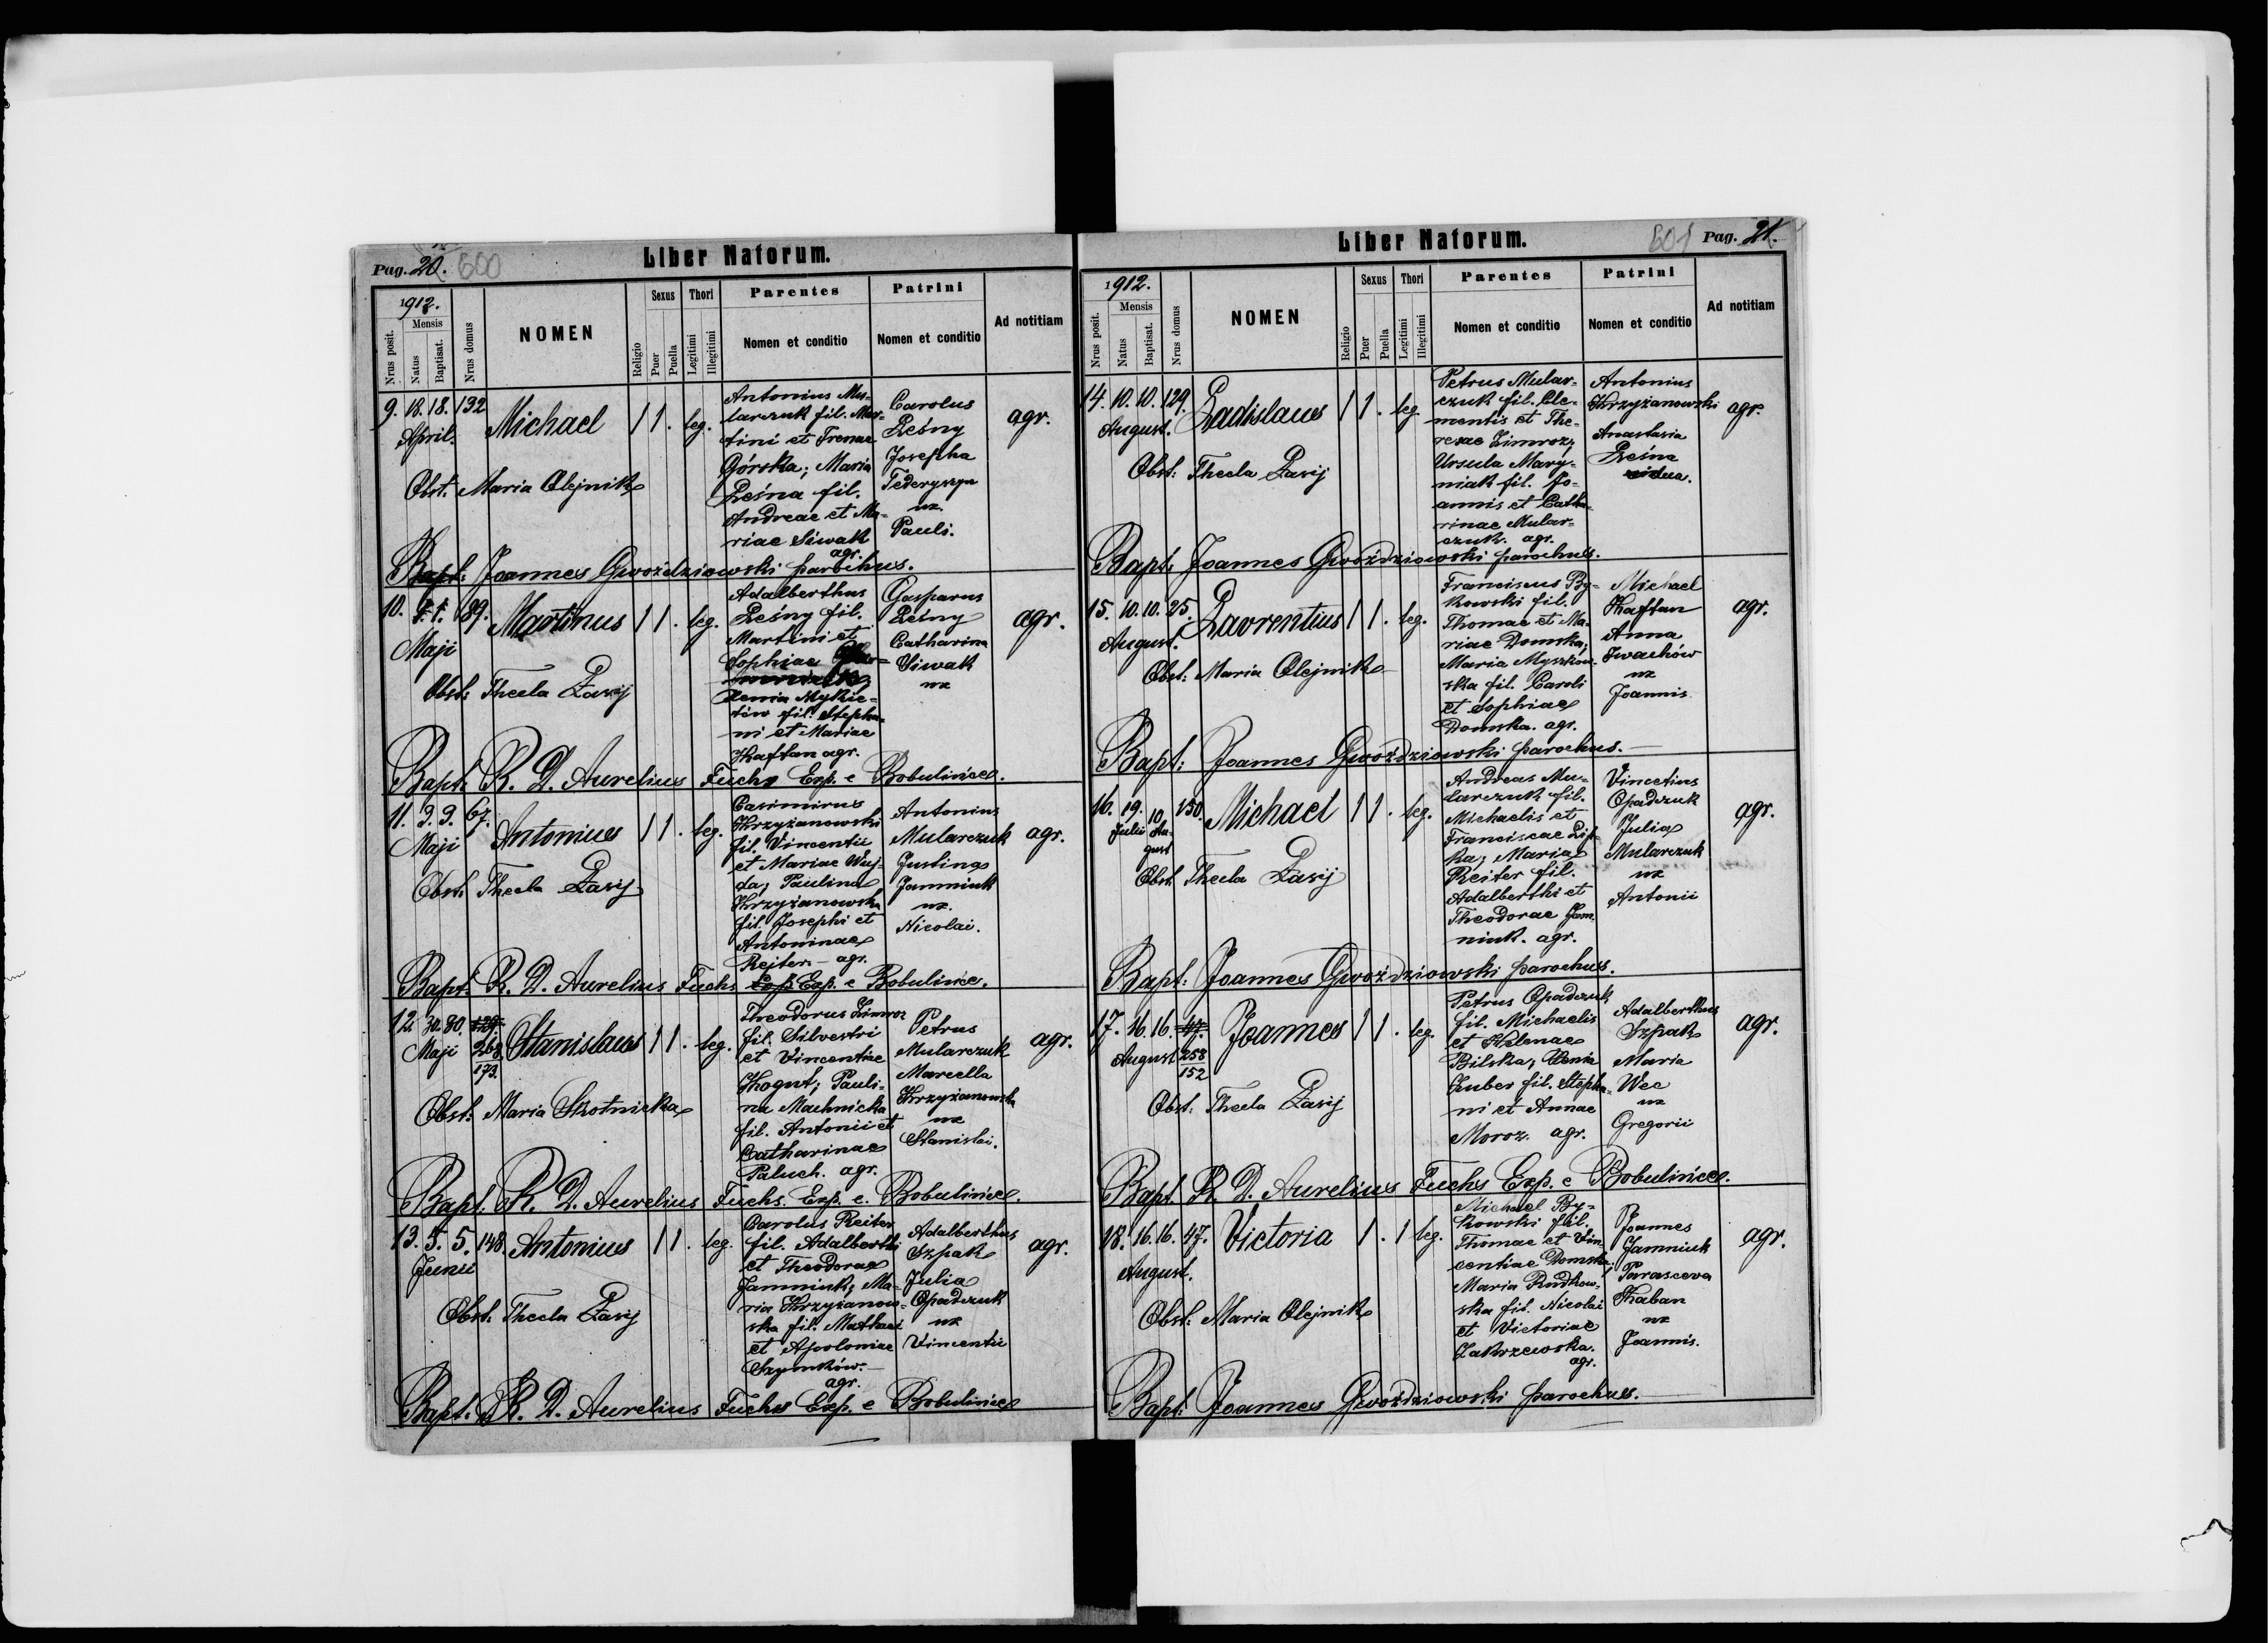 Pag. 20. 600
Liber Natorum.
1912.
Nrus posit.
Mensis
Natus
Baptisat.
Nrus domus
NOMEN
Religio
Sexus
Puer
Puella
Thori
Legitimi
Illegitimi
Parentes
Nomen et conditio
Patrini
Nomen et conditio
Ad notitiam
9. 18. 18. 132
April.
Michael
1 1. leg.
Antonius Mu-
larczuk fil. Mar-
tini et Irenae
Górska; Maria
Leśna fil.
Andreae et Ma-
riae Siwak
agr.
Carolus
Leśny
Josepha
Federyszyn
ux.
Pauli.
agr.
Obst. Maria Olejnik
Bapt: Joannes Gwoździowski parochus.
10. 1. 1. 89.
Maji
Martinus
1 1. leg.
Adalberthus
Leśny fil.
Martini et
Sophiae
Xenia Mykie-
tów fil. Stepha-
ni et Mariae
Kaftan agr.
Gasparus
Leśny
Catharina
Siwak
ux
agr.
Obst: Thecla Łasij
Bapt: R. D. Aurelius Fuchs Exp. e Bobulińce.
11. 9. 9. 67.
Maji
Antonius
1 1. leg.
Casimirus
Krzyżanowski
fil. Vincentii
et Mariae Wuj-
da; Paulina
Krzyżanowska
fil. Josephi et
Antoninae
Rejter - agr.
Antonius
Mularczuk
Justina
Jamniuk
ux.
Nicolai.
agr.
Obst: Thecla Łasij
Bapt: R. D. Aurelius Fuchs Exp. Exp. e Bobulińce.
12. 30. 30. 129.
Maji 268
173.
Stanislaus
1 1. leg.
Theodorus Zimroz
fil. Silvestri
et Vincentiae
Kogut; Pauli-
na Machnicka
fil. Antonii et
Catharinae
Paluch. agr.
Petrus
Mularczuk
Marcella
Krzyżanowska
ux
Stanislai.
agr.
Obst: Maria Skotnicka
Bapt. R. D. Aurelius Fuchs. Exp. e. Bobulińce.
13. 5. 5. 148
Junii
Antonius
1 1. leg.
Carolus Reiter
fil. Adalberthi
et Theodorae
Jamniuk; Ma-
ria Krzyżanow-
ska fil. Mathaei
et Apoloniae
Szymków.
agr.
Adalberthus
Szpak
Julia
Opadczuk
ux
Vincentii
agr.
Obst: Thecla Łasij
Bapt. R. D. Aurelius Fuchs Exp. e Bobulińce
Liber Natorum.
601 Pag. 21.
1912.
Nrus posit.
Mensis
Natus
Baptisat.
Nrus domus
NOMEN
Religio
Sexus
Puer
Puella
Thori
Legitimi
Illegitimi
Parentes
Nomen et conditio
Patrini
Nomen et conditio
Ad notitiam
14. 10. 10. 129.
August.
Ladislaus
1 1. leg.
Petrus Mular-
czuk fil. Cle-
mentis et The-
resae Zimroz;
Ursula Mary-
niak fil. Jo-
annis et Catha-
rinae Mular-
czuk. agr.
Antonius
Krzyżanowski
Anastasia
Leśna
vidua.
agr.
Obst: Thecla Łasij
Bapt: Joannes Gwoździowski parochus.
15. 10. 10. 25.
August.
Laurentius
1 1. leg.
Franciscus By-
kowski fil.
Thomae et Ma-
riae Domska;
Maria Myszkow-
ska fil. Caroli
et Sophiae
Domska. agr.
Michael
Kaftan
Anna
Iwachów
ux
Joannis
agr.
Obst: Maria Olejnik
Bapt: Joannes Gwoździowski parochus.
16. 19. 10. 150.
Julii Au-
gust
Michael
1 1. leg.
Andreas Mu-
larczuk fil.
Michaelis et
Franciscae Lip-
ka; Maria
Reiter fil.
Adalberthi et
Theodorae Jam-
niuk. agr.
Vincetius
Opadczuk
Julia
Mularczuk
ux
Antonii
agr.
Obst. Thecla Łasij
Bapt: Joannes Gwoździowski parochus.
17. 16. 16. 47.
August 258
152
Joannes
1 1. leg.
Petrus Opadczuk
fil. Michaelis
et Helenae
Bilska; Xenia
Huber fil. Stepha-
ni et Annae
Moroz. agr.
Adalberthus
Szpak
Maria
Wec
ux
Gregorii
agr.
Obst: Thecla Łasij
Bapt. R. D. Aurelius Fuchs Exp. e Bobulińce.
18. 16. 16. 47.
August.
Victoria
1. 1 leg.
Michael By-
kowski fil.
Thomae et Vin-
centiae Domska;
Maria Rudkow-
ska fil. Nicolai
et Victoriae
Zakrzewska.
agr.
Joannes
Jamniuk
Parasceva
Haban
ux
Joannis.
agr.
Obst: Maria Olejnik
Bapt: Joannes Gwoździowski parochus.